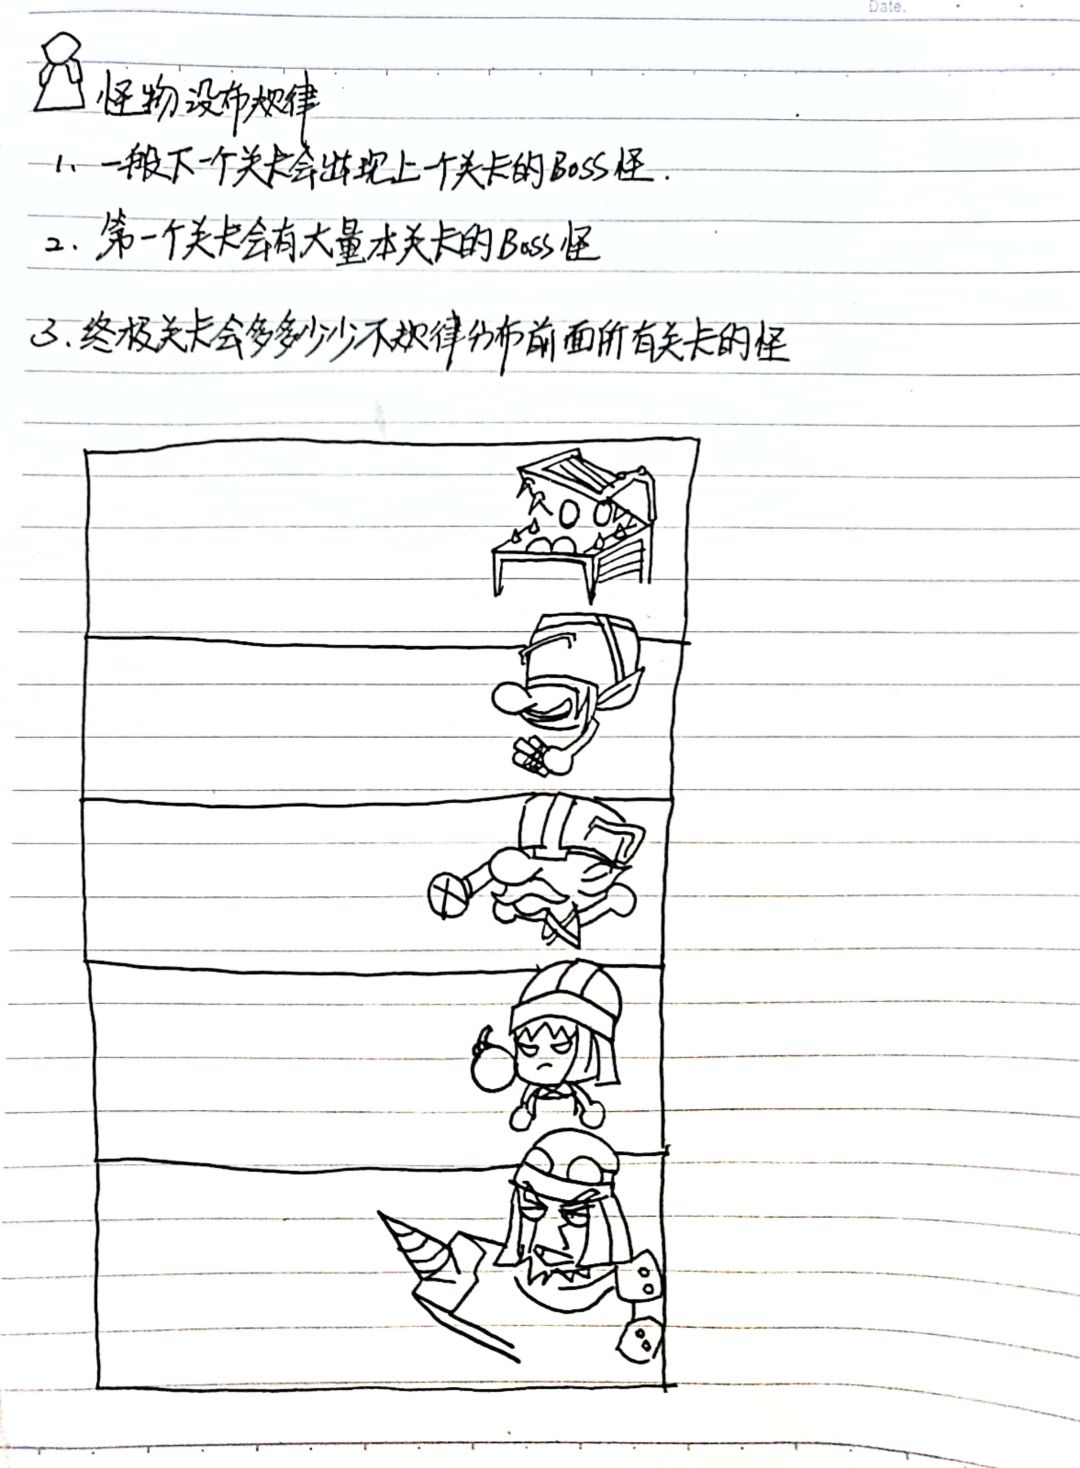 Date.
怪物设布规律
1. 一般下一个关卡会出现上一个关卡的Boss怪.
2. 第一个关卡会有大量本关卡的Boss怪
3. 终极关卡会多多少少不规律分布前面所有关卡的怪